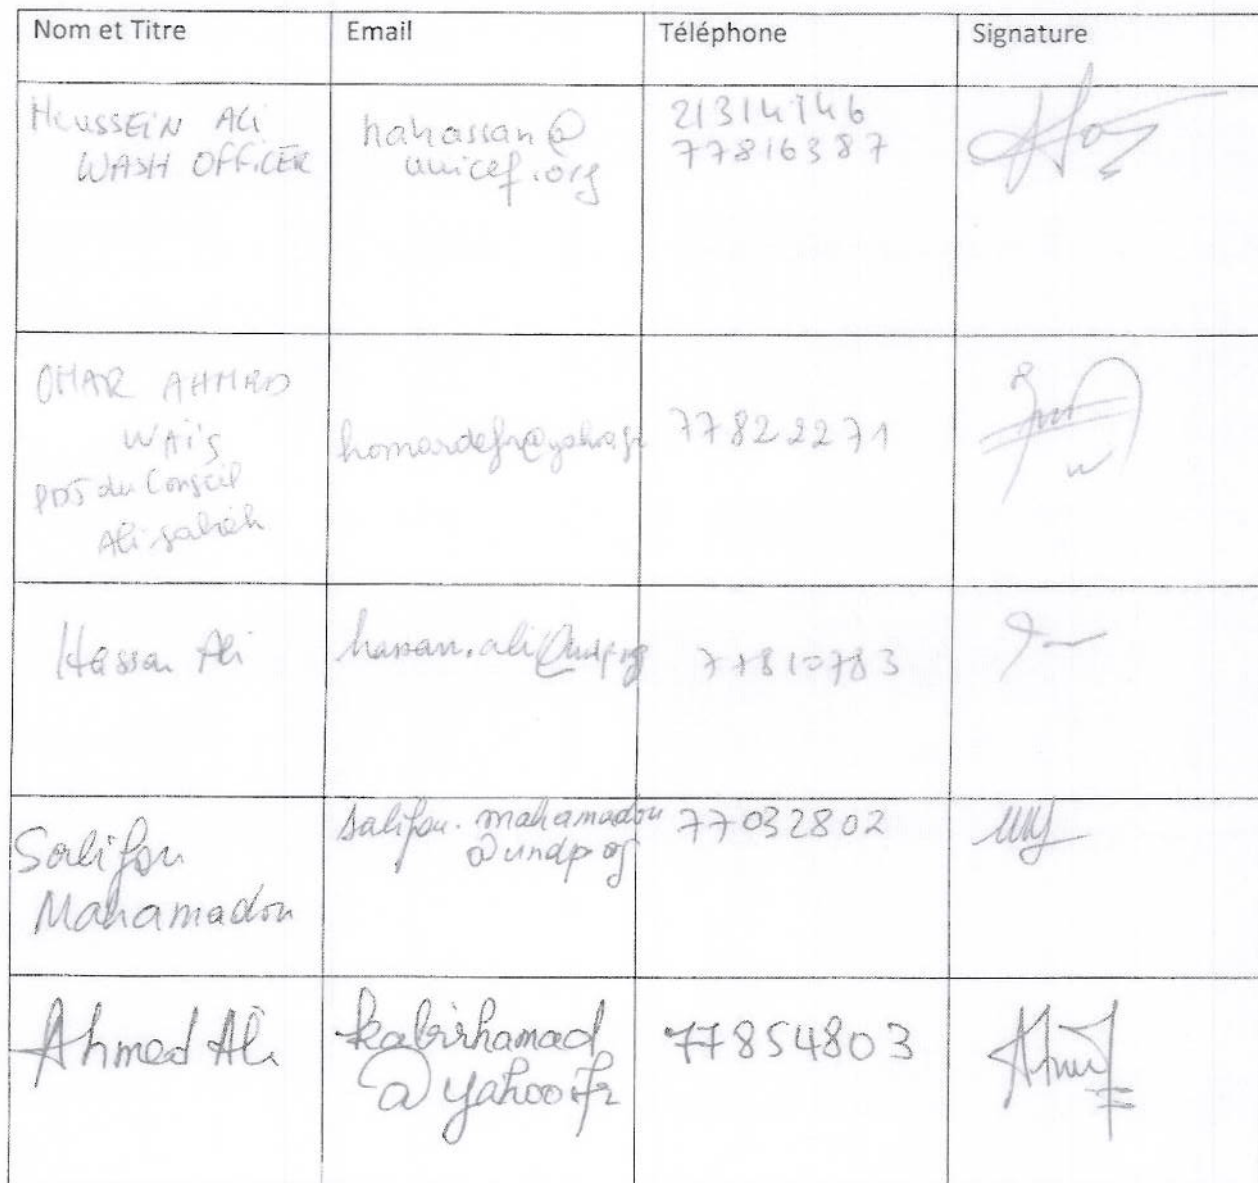 Nom et Titre
Email
Téléphone
Signature
HUSSEIN ALI
WASH OFFICER
hahassan@
unicef.org
21314146
77816387
OMAR AHMED
WAÏS
PDT du Conseil
Ali sabieh
homardefr@yahoo.fr
77822271
Hassan Ali
hassan.ali@undp.org
77810783
Salifou
Mahamadou
salifou.mahamadou
@undp.org
77032802
Ahmed Ali
kabirhamad
@yahoo.fr
77854803